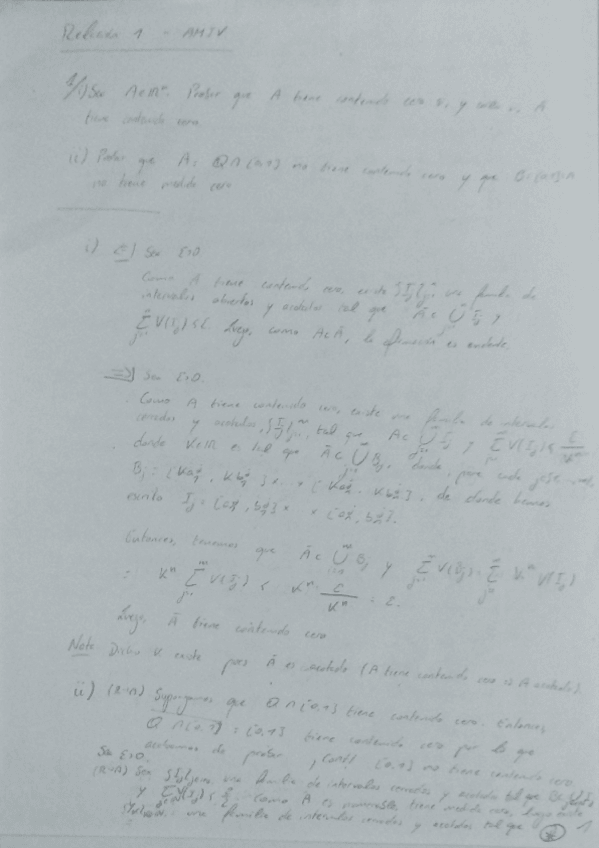 Relación 1 - AMIV
1/ i) Sea A⊂ℝⁿ. Probar que A tiene contenido cero si, y sólo si, Ā
tiene contenido cero
ii) Probar que A = ℚ∩[0,1] no tiene contenido cero y que [0,1]\A
no tiene medida cero
i) ⇐) Sea ε>0
Como Ā tiene contenido cero, existe {I_j}_{j=1}^m una familia de
intervalos abiertos y acotados tal que Ā ⊂ ⋃_{j=1}^m I_j y
∑_{j=1}^m V(I_j) < ε. Luego, como A⊂Ā, la afirmación es evidente.
⇒) Sea ε>0.
Como A tiene contenido cero, existe una familia de intervalos
cerrados y acotados, {I_j}_{j=1}^m, tal que A ⊂ ⋃_{j=1}^m I_j y ∑_{j=1}^m V(I_j) < ε/Kⁿ
donde K∈ℝ es tal que Ā ⊂ ⋃_{j=1}^m B_j, donde, para cada
B_j = [Ka_1^j, Kb_1^j] × × [Ka_n^j, Kb_n^j], de donde hemos
escrito I_j = [a_1^j, b_1^j] × × [a_n^j, b_n^j].
Entonces, tenemos que Ā ⊂ ⋃_{j=1}^m B_j y ∑_{j=1}^m V(B_j) = ∑_{j=1}^m Kⁿ V(I_j)
= Kⁿ ∑_{j=1}^m V(I_j) < Kⁿ · ε/Kⁿ = ε.
Luego, Ā tiene contenido cero
Nota Dicho K existe pues Ā es acotado (A tiene contenido cero ⇒ A acotado).
ii) (R-A) Supongamos que ℚ∩[0,1] tiene contenido cero. Entonces,
ℚ∩[0,1] = [0,1] tiene contenido cero por lo que
acabamos de probar, [0,1] no tiene contenido cero
Sea ε>0.
(R-A) Sea {I_j} una familia de intervalos cerrados y acotados tal que
y ∑V(I_j) < ε/2. Como A es numerable, tiene medida cero, luego existe
una familia de intervalos cerrados y acotados tal que
1